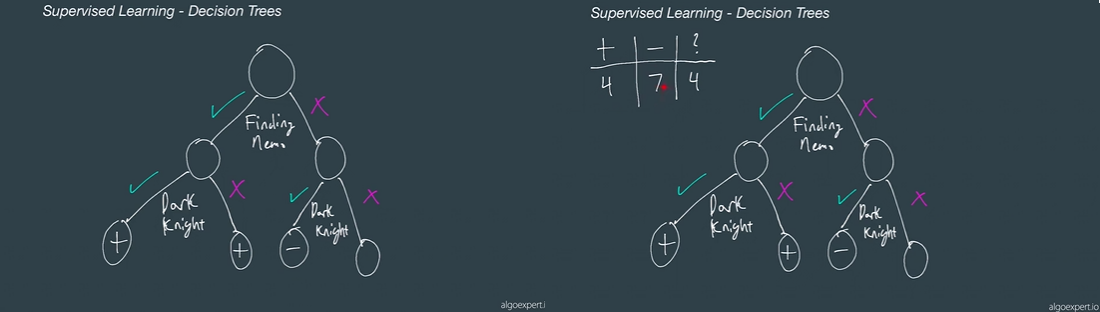 Supervised Learning - Decision Trees
✓ X
Finding
Nemo
✓ X ✓ X
Dark
Knight
Dark
Knight
+ + −
algoexpert.i
Supervised Learning - Decision Trees
+ − ?
4 7 4
✓ X
Finding
Nemo
✓ X ✓ X
Dark
Knight
Dark
Knight
+ + −
algoexpert.io